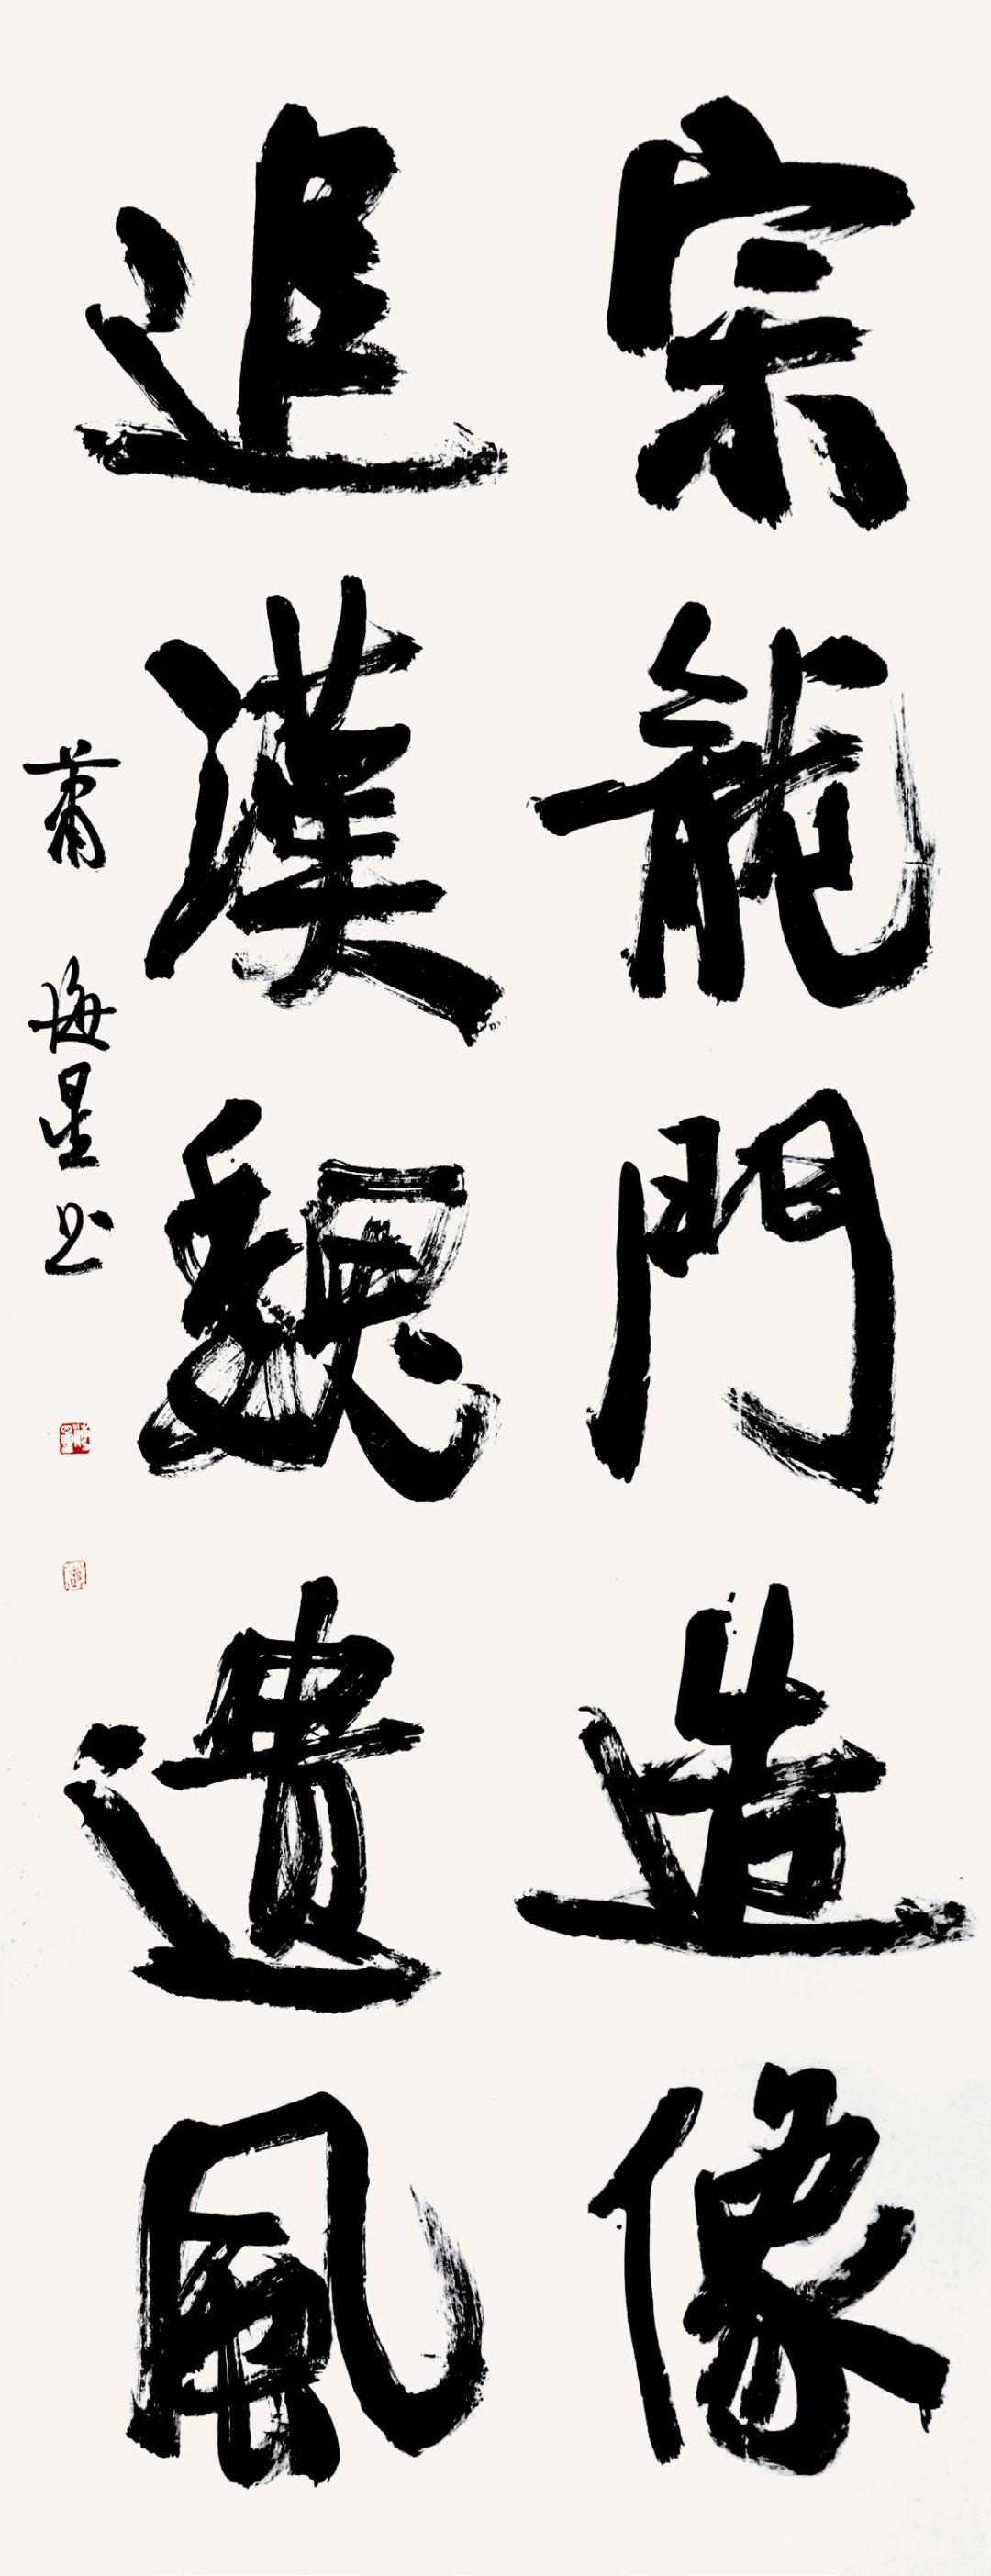 宗龍門造像
追漢魏遺風
蕭海星书